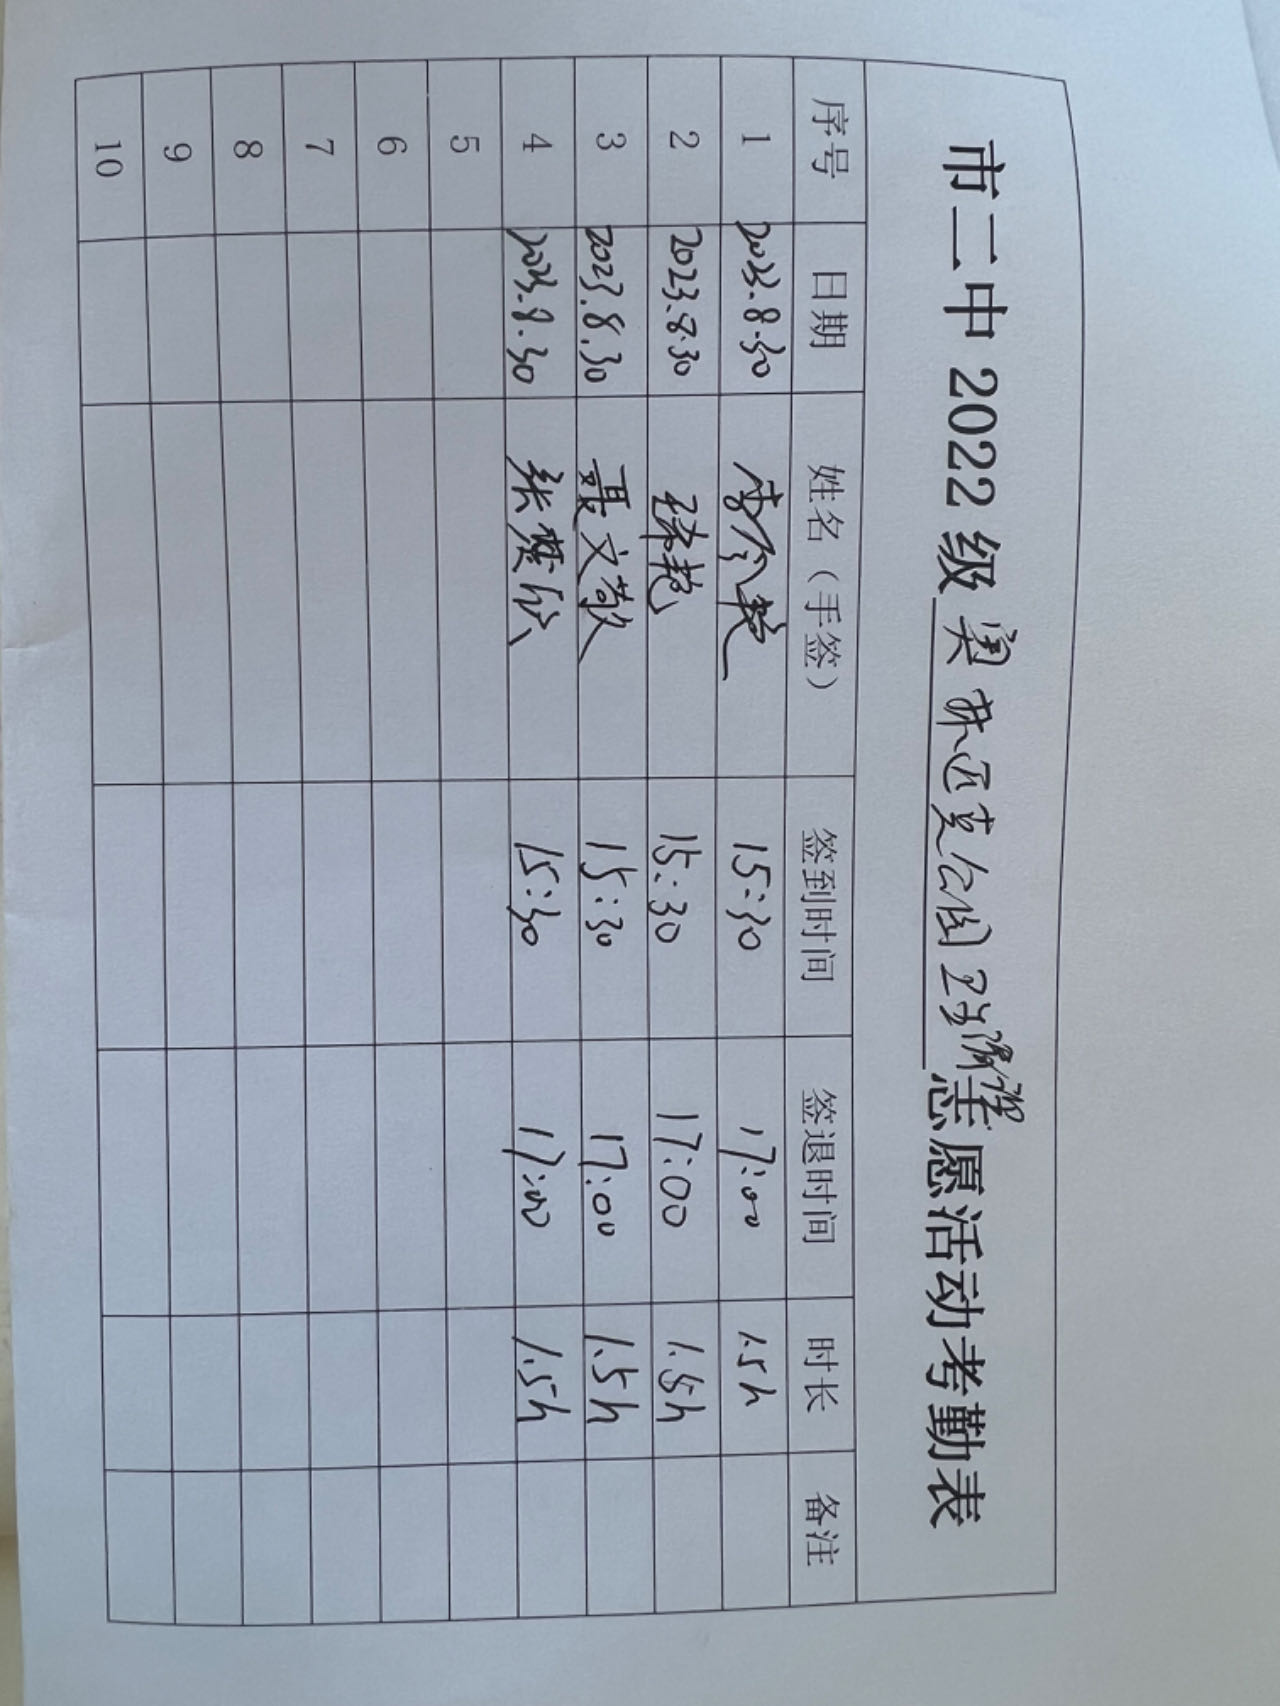 市二中 2022 级奥林匹克公园 志愿活动考勤表
序号 日期 姓名（手签） 签到时间 签退时间 时长 备注
1 2023.8.30 15:30 17:00 1.5h
2 2023.8.30 15:30 17:00 1.5h
3 2023.8.30 聂文歆 15:30 17:00 1.5h
4 2023.8.30 张 15:30 17:00 1.5h
5
6
7
8
9
10